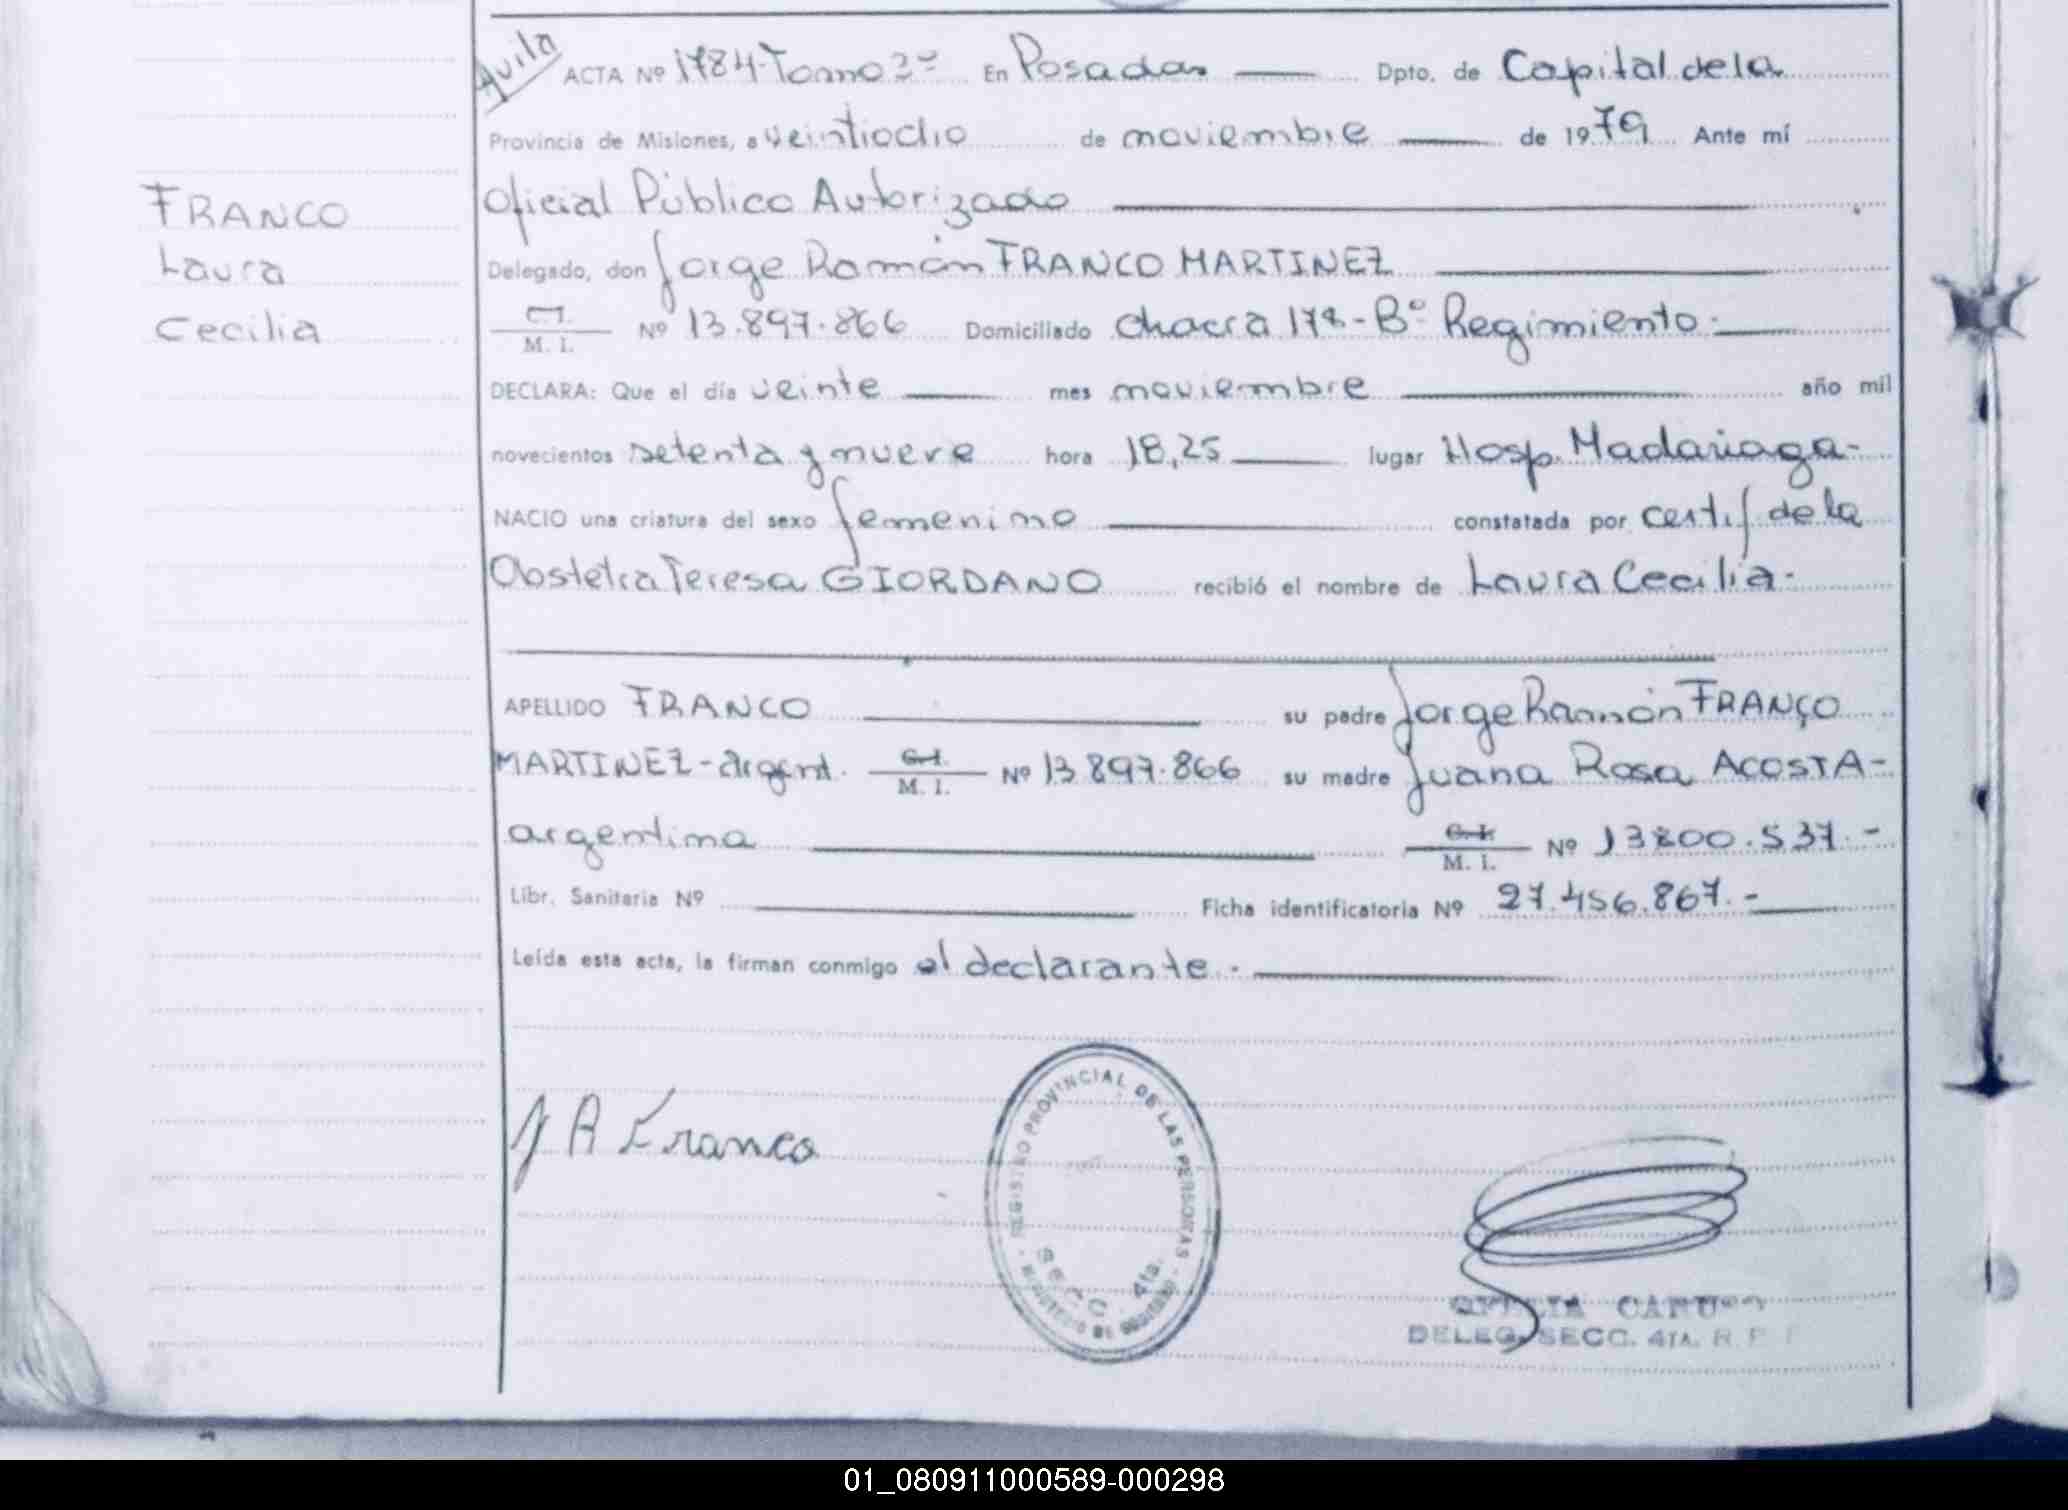 Avila
ACTA Nº 1784-Tomo 3º En Posadas Dpto. de Capital de la
Provincia de Misiones, a veintiocho de noviembre de 1979 Ante mí
Oficial Público Autorizado
Delegado, don Jorge Ramón FRANCO MARTINEZ
C.I.
M. I. Nº 13.897.866 Domiciliado chacra 178-Bº Regimiento.
DECLARA: Que el día veinte mes noviembre año mil
novecientos setenta y nueve hora 18,25 lugar Hosp. Madariaga-
NACIO una criatura del sexo femenino constatada por certif de la
Obstetra Teresa GIORDANO recibió el nombre de Laura Cecilia-
APELLIDO FRANCO su padre Jorge Ramón FRANCO
MARTINEZ-argent. C.I.
M. I. Nº 13.897.866 su madre Juana Rosa ACOSTA-
argentina C.I.
M. I. Nº 13800.537.-
Libr. Sanitaria Nº Ficha identificatoria Nº 27.456.867.-
Leída esta acta, la firman conmigo el declarante.
FRANCO
Laura
Cecilia
J R Franco
REGISTRO PROVINCIAL DE LAS PERSONAS
SECC. 4ta.
MINISTERIO DE GOBIERNO
OFELIA CARUSO
DELEG. SECC. 4TA. R. P.
01_080911000589-000298